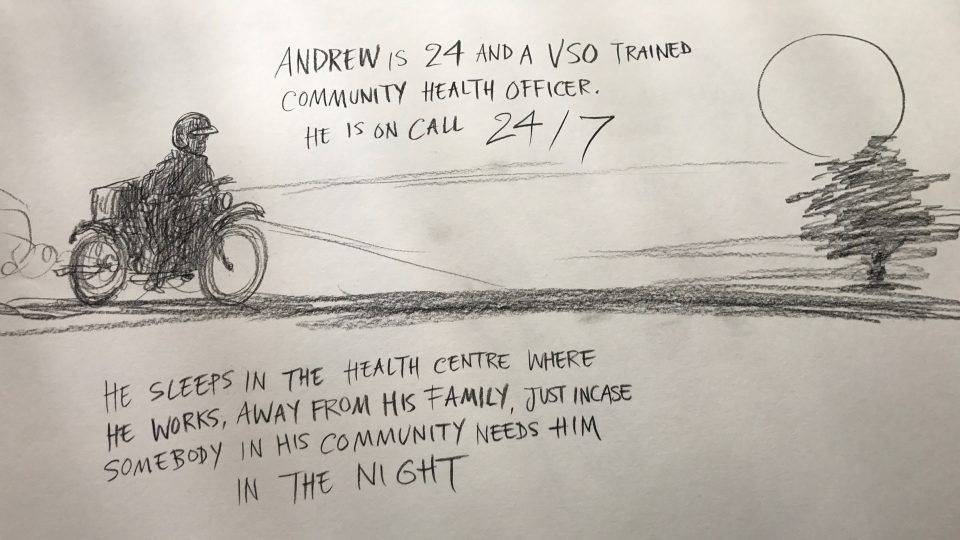 ANDREW IS 24 AND A VSO TRAINED
COMMUNITY HEALTH OFFICER.
HE IS ON CALL 24/7
HE SLEEPS IN THE HEALTH CENTRE WHERE
HE WORKS, AWAY FROM HIS FAMILY, JUST INCASE
SOMEBODY IN HIS COMMUNITY NEEDS HIM
IN THE NIGHT